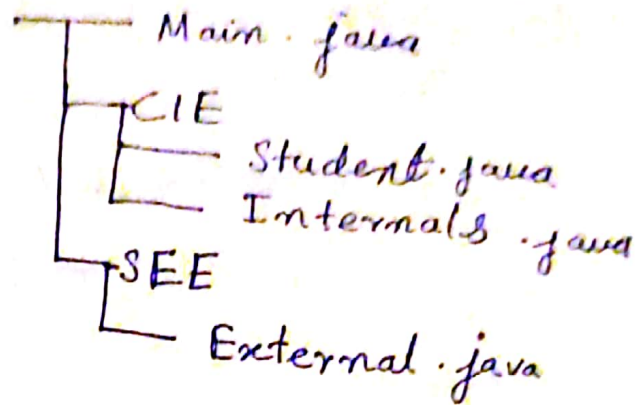 Main.java
CIE
Student.java
Internals.java
SEE
External.java